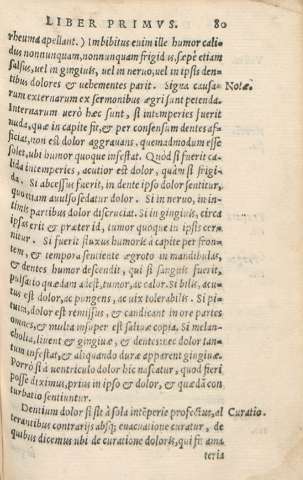 LIBER PRIMVS. 80
rheuma apellant.) Imbibitus enim ille humor cali-
dus nonnunquam, nonnunquam frigidus, sæpè etiam
salsus, uel in gingiuis, uel in neruo, uel in ipsis den-
tibus dolores & uehementes parit. Signa causa- Notæ.
rum externarum ex sermonibus ægri sunt petenda.
Internarum uerò hæc sunt, si intemperies fuerit
nuda, quæ in capite sit, & per consensum dentes af-
ficiat, non est dolor aggrauans, quemadmodum esse
solet, ubi humor quoque infestat. Quòd si fuerit ca-
lida intemperies, acutior est dolor, quàm si frigi-
da. Si abcessus fuerit, in dente ipso dolor sentitur,
quotiam auulso sedatur dolor. Si in neruo, in in-
timis partibus dolor discruciat. Si in gingiuis, circa
ipsas erit & præter id, tumor quoque in ipsis cer-
nitur. Si fuerit fluxus humoris à capite per fron-
tem, & tempora sentiente ægroto in mandibulas,
& dentes humor descendit, qui si sanguis fuerit,
pulsatio quædam adest, tumor, ac calor. Si bilis, acu-
tus est dolor, ac pungens, ac uix tolerabilis. Si pi-
tuita, dolor est remissus, & candicant in ore partes
omnes, & multa insuper est saliuæ copia. Si melan-
cholia, liuent & gingiuæ, & dentes: nec dolor tan-
tum infestat, & aliquando duræ apparent gingiuæ.
Porrò si à uentriculo dolor hic nascatur, quod fieri
posse diximus, prius in ipso & dolor, & quædã con-
turbatio sentiuntur.
Dentium dolor si sit à sola intẽperie profectus, al Curatio.
terantibus contrarijs absq; euacuatione curatur, de
quibus dicemus ubi de curatione doloris, qui sit à ma
teria